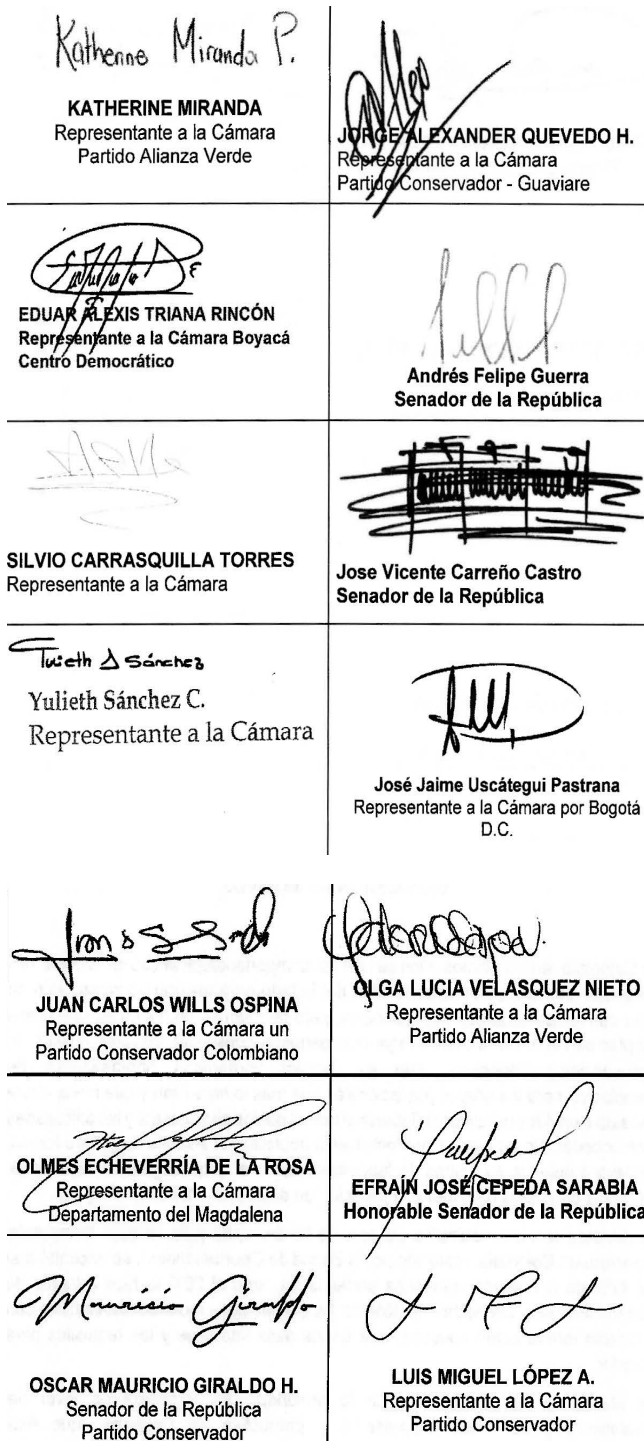 Katherine Miranda P.
KATHERINE MIRANDA
Representante a la Cámara
Partido Alianza Verde
JORGE ALEXANDER QUEVEDO H.
Representante a la Cámara
Partido Conservador - Guaviare
EDUAR ALEXIS TRIANA RINCÓN
Representante a la Cámara Boyacá
Centro Democrático
Andrés Felipe Guerra
Senador de la República
SILVIO CARRASQUILLA TORRES
Representante a la Cámara
Jose Vicente Carreño Castro
Senador de la República
Yulieth Sánchez C.
Representante a la Cámara
José Jaime Uscátegui Pastrana
Representante a la Cámara por Bogotá
D.C.
JUAN CARLOS WILLS OSPINA
Representante a la Cámara un
Partido Conservador Colombiano
OLGA LUCIA VELASQUEZ NIETO
Representante a la Cámara
Partido Alianza Verde
OLMES ECHEVERRÍA DE LA ROSA
Representante a la Cámara
Departamento del Magdalena
EFRAÍN JOSÉ CEPEDA SARABIA
Honorable Senador de la República
Mauricio Giraldo
OSCAR MAURICIO GIRALDO H.
Senador de la República
Partido Conservador
LUIS MIGUEL LÓPEZ A.
Representante a la Cámara
Partido Conservador